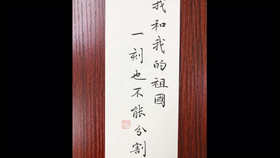 我和我的祖國
一刻也不能分割